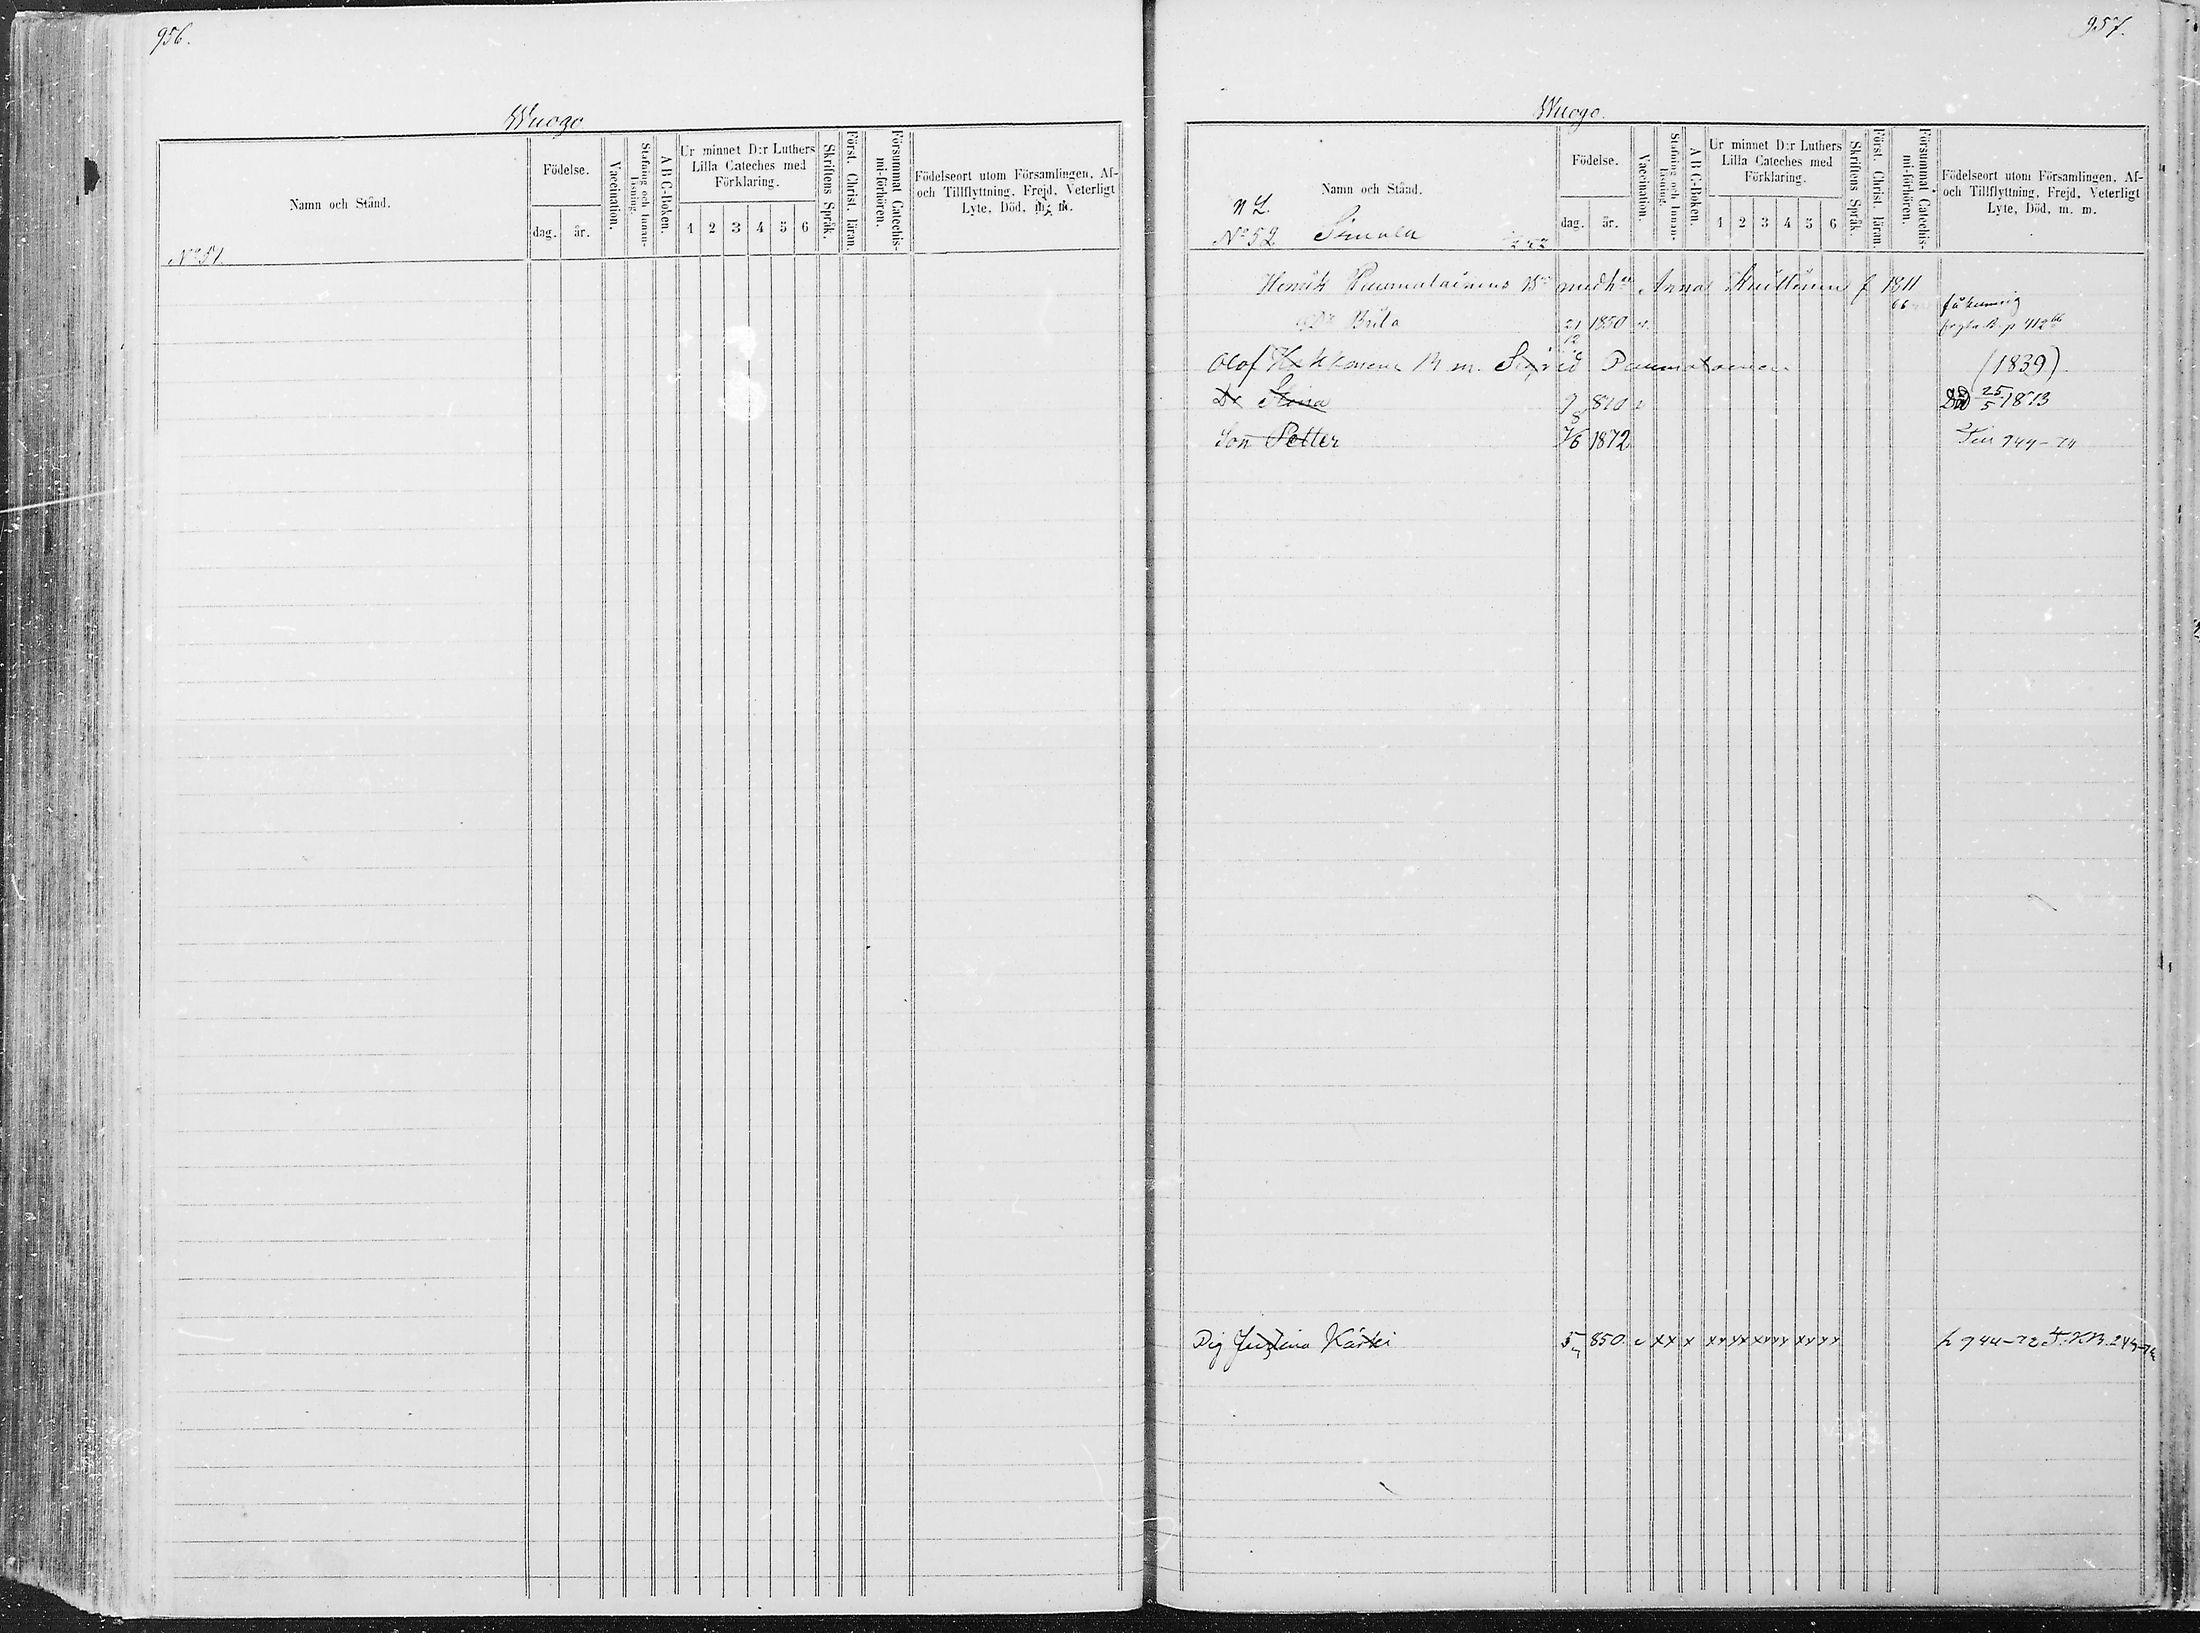 956.
Wuogo
Namn och Stånd.
Födelse.
dag. år.
Vaccination.
Stafning och Innan-läsning.
A B C-Boken.
Ur minnet D:r Luthers Lilla Cateches med Förklaring.
1 2 3 4 5 6
Skriftens Språk.
Först. Christ. läran.
Försummat Catechis-mi-förhören.
Födelseort utom Församlingen, Af- och Tillflyttning, Frejd, Veterligt Lyte, Död, m. m.
No 51.
957.
Wuogo.
Namn och Stånd.
Födelse.
dag. år.
Vaccination.
Stafning och Innan-läsning.
A B C-Boken.
Ur minnet D:r Luthers Lilla Cateches med Förklaring.
1 2 3 4 5 6
Skriftens Språk.
Först. Christ. läran.
Försummat Catechis-mi-förhören.
Födelseort utom Församlingen, Af- och Tillflyttning, Frejd, Veterligt Lyte, Död, m. m.
No 52 Simola
Henrik med Anna f 1811
Brita 21/12 1850 v.
Olof Hakkonen m. Sigrid (1839)
Dr Stina 9/8 870 v Död 25/5 1873
Son Petter 7/6 1872 949-74
Pig Justina Kärki 850 v xx x xx xx xx xx xx xx 944-72